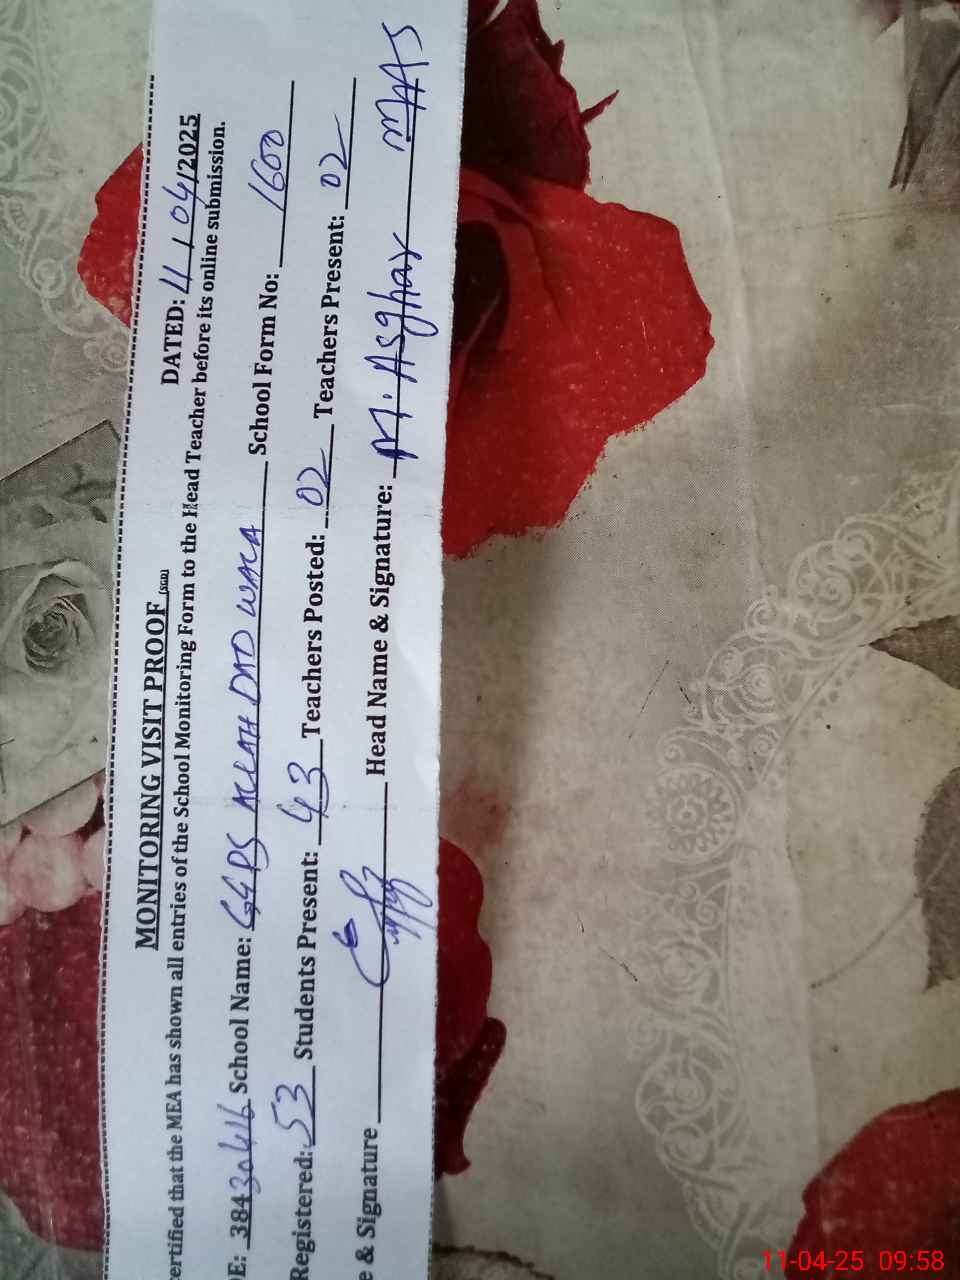 MONITORING VISIT PROOF (SGD) DATED: 11/04/2025
ertified that the MEA has shown all entries of the School Monitoring Form to the Head Teacher before its online submission.
DE: 38430416 School Name: GGPS ALLAH DAD WALA School Form No: 1600
Registered: 53 Students Present: 43 Teachers Posted: 02 Teachers Present: 02
e & Signature Head Name & Signature: M. Asghar
11-04-25 09:58